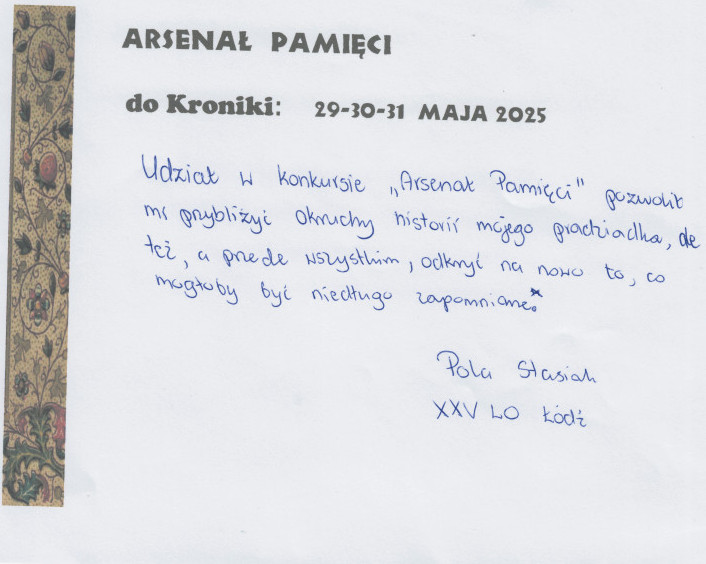 ARSENAŁ PAMIĘCI
do Kroniki: 29-30-31 MAJA 2025
Udział w konkursie „Arsenał Pamięci" pozwolił
mi przybliżyć okruchy historii mojego pradziadka, ale
też, a przede wszystkim, odkryć na nowo to, co
mogłoby być niedługo zapomniane.
Pola Stasiak
XXV LO Łódź